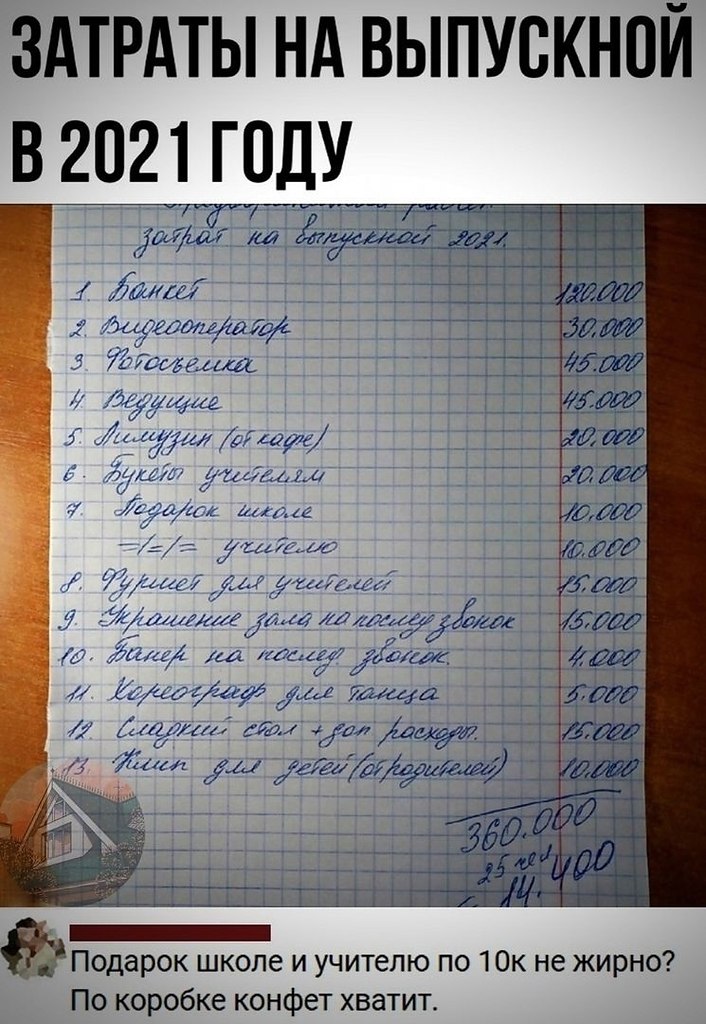 ЗАТРАТЫ НА ВЫПУСКНОЙ
В 2021 ГОДУ
затрат на выпускной 2021.
1. Банкет 120.000
2. Видеооператор 30.000
3. Фотосъемка 45.000
4. Ведущие 45.000
5. Лимузин (от кафе) 20.000
6. Букеты учителям 20.000
7. Подарок школе 10.000
=/=/= учителю 10.000
8. Фуршет для учителей 15.000
9. Украшение зала на послед звонок 15.000
10. Банер на послед звонок. 4.000
11. Хореограф для танца 5.000
12 Сладкий стол + доп расходы. 15.000
13. Клип для детей (от родителей) 10.000
360.000
25 чел
14.400
Подарок школе и учителю по 10к не жирно?
По коробке конфет хватит.